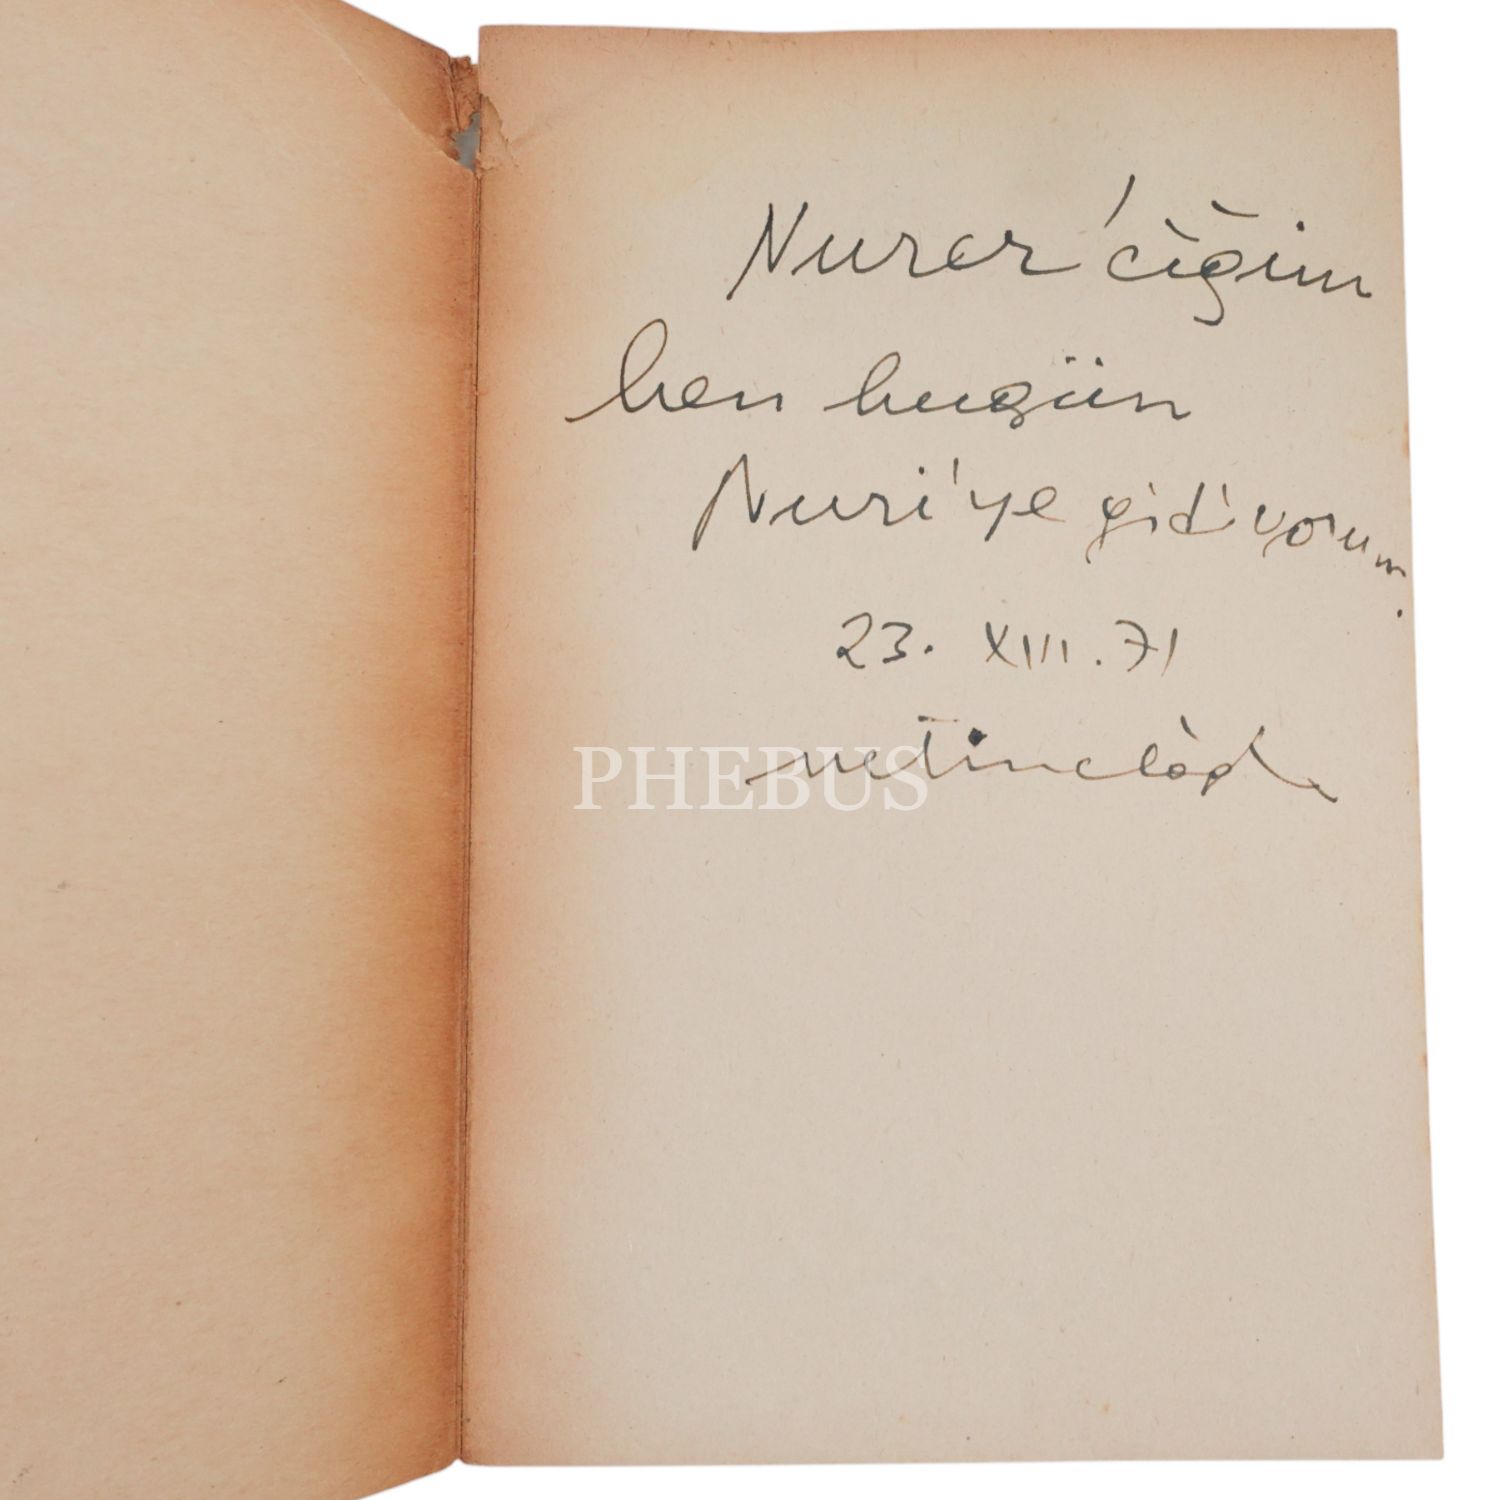 Nurer'ciğim
ben bugün
Nuri'ye gidiyorum.
23. XIII. 71
metineloğlu
PHEBUS